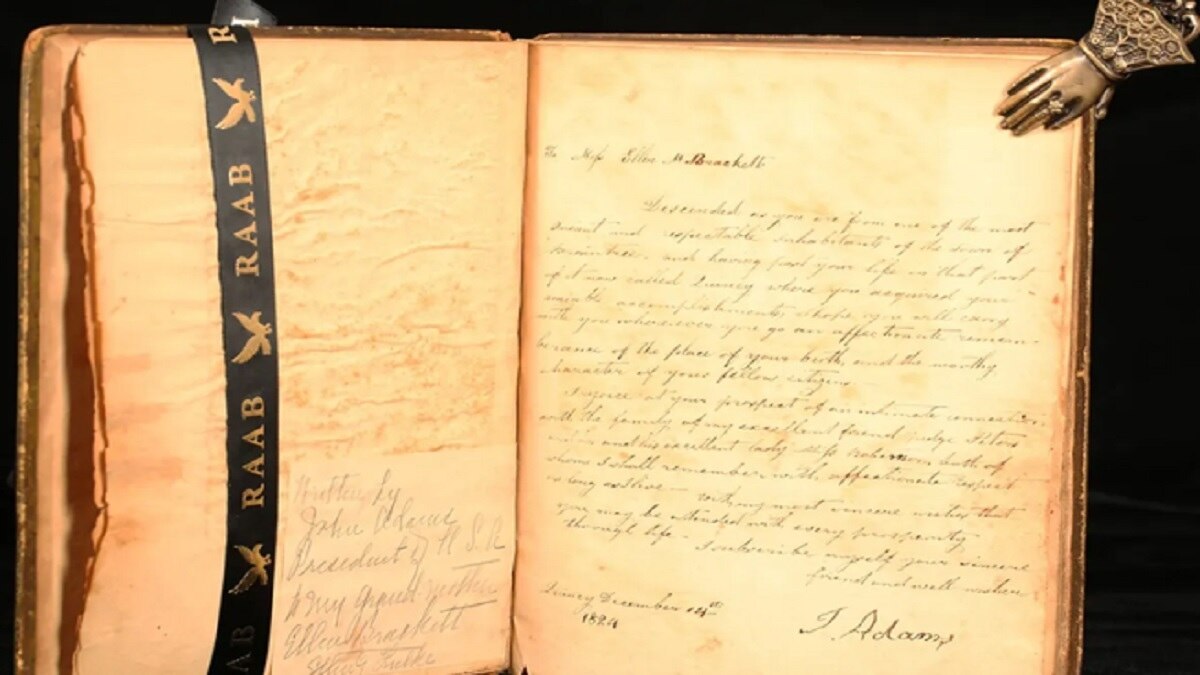 RAAB
RAAB
RAAB
AB
Written by
John Adams
President of U S A
to my Grand mother
Ellen Brackett
To Miss Ellen M Brackett
Descended as you are from one of the most
ancient and respectable inhabitants of the town of
Braintree, and having past your life in that part
of it now called Quincy where you acquired your
amiable accomplishments, I hope you will carry
with you wherever you go an affectionate remem-
berance of the place of your birth, and the worthy
character of your fellow citizens
I rejoice at your prospect of an intimate connection
with the family of my excellent friend judge
and his excellent lady, Miss both of
whom I shall remember with affectionate respect
as long as I live — with my most sincere wishes that
you may be attended with every prosperity
through life — I subscribe myself your sincere
friend and well wisher
Quincy December 14th
1824
J. Adams